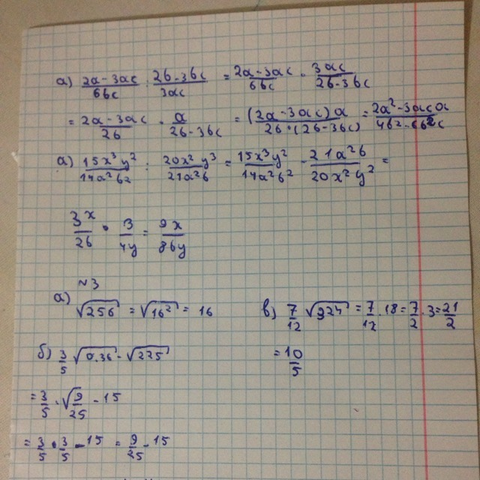 а) (2a-3ac)/(6bc) : (2b-3bc)/(3ac) = (2a-3ac)/(6bc) · (3ac)/(2b-3bc)
= (2a-3ac)/(2b) · a/(2b-3bc) = ((2a-3ac)a)/(2b·(2b-3bc)) = (2a²-3aca)/(4b²-6b²c)
а) (15x³y²)/(14a²b²) : (20x²y³)/(21a²b) = (15x³y²)/(14a²b²) · (21a²b)/(20x²y²) =
(3x)/(2b) · 3/(4y) = (9x)/(86y)
N3
а) √256 = √16² = 16
в) 7/12 √324 = 7/12 · 18 = 7/2 · 3 = 21/2
= 10/5
б) 3/5 √0,36 - √225
= 3/5 · √9/25 - 15
= 3/5 · 3/5 - 15 = 9/25 - 15